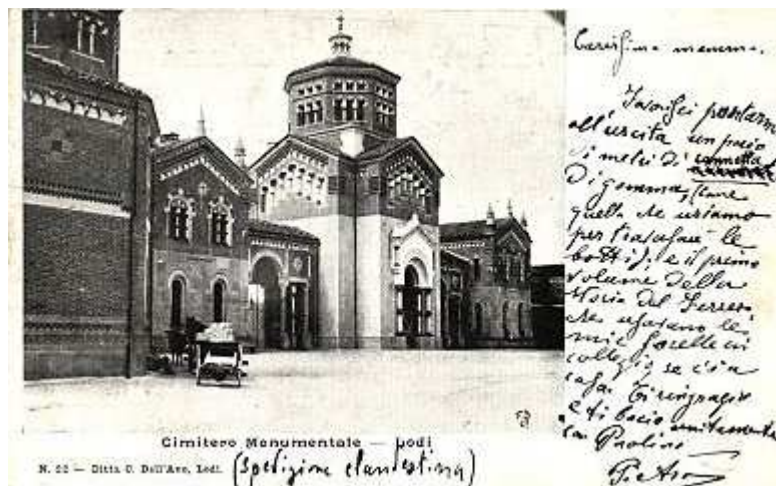 Carissima mamma.
Favorisci portarmi
all'uscita un paio
di metri di cannetta
di gomma, (come
quella che usiamo
per travasare le
botti), e il primo
volume della
storia del Ferrero
che usavano le
mie sorelle in
collegio, se è in
casa. Ti ringrazio
e ti bacio unitamente
Paolino
Pietro
Cimitero Monumentale — Lodi
N. 22 — Ditta C. Dell'Avo, Lodi.
(spedizione clandestina)